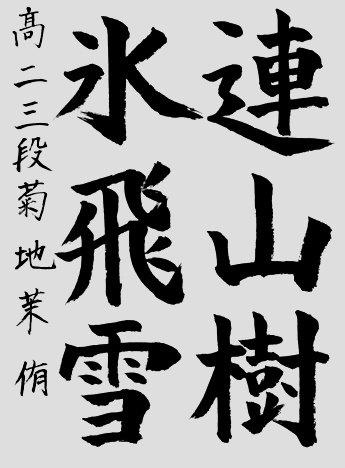 連山樹
氷飛雪
高二三段菊地茉侑